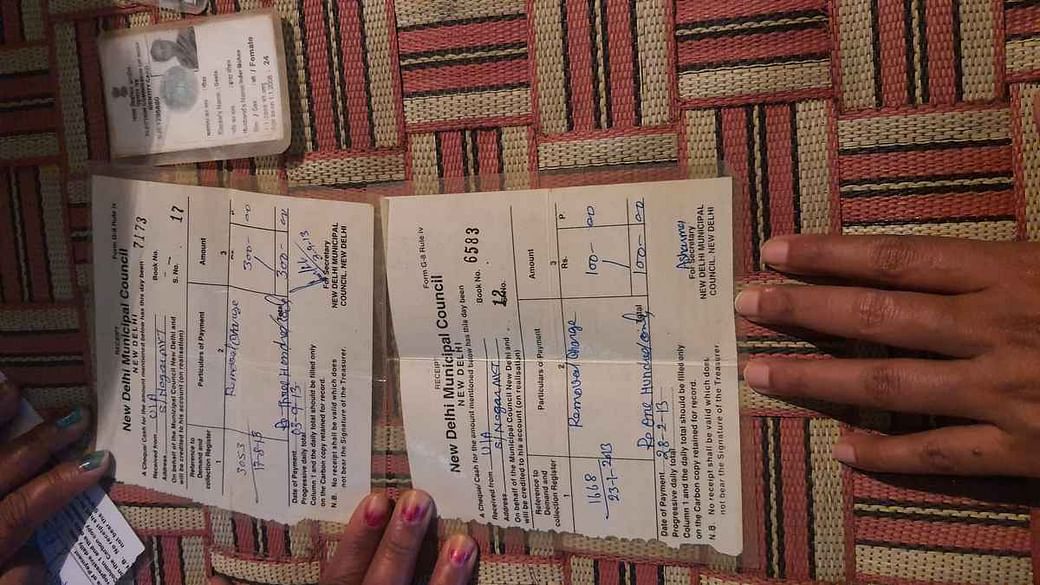 ELECTION COMMISSION OF INDIA
IDENTITY CARD
Elector's Name : Geeta
Husband's Name
Sex / Female
24
Form G-8 Rule iv
RECEIPT
New Delhi Municipal Council
NEW DELHI
7173
A Cheque/ Cash for the amount mentioned below has this day been
Book No.
Received from U/A
Address S/Nagar MKT
S. No. 17
On behalf of the Municipal Council New Delhi and
will be credited to his account (on realisation)
Reference to Demand and collection Register
Particulars of Payment
Amount
1
2
3
3053
17-8-13
Removal Charge
300-
00
Total
300-
00
Rs Three Hundred only
Date of Payment 03-9-13
Progressive daily total
Column 1 and the daily total should be filled only
on the Carbon copy retained for record.
For Secretary
NEW DELHI MUNICIPAL
COUNCIL, NEW DELHI
N.B. No receipt shall be valid which does
not bear the Signature of the Treasurer.
Form G-8 Rule iv
RECEIPT
New Delhi Municipal Council
NEW DELHI
A Cheque/ Cash for the amount mentioned below has this day been
Book No. 6583
Received from U/A
Address S/Nagar MKT
S. No. 12
On behalf of the Municipal Council New Delhi and
will be credited to his account (on realisation)
Reference to Demand and collection Register
Particulars of Payment
Amount
1
2
3
Rs.
P.
1618
23-1-2013
Removal Charge
100-
00
Total
100-
00
Rs One Hundred only
Date of Payment 28-2-13
Progressive daily total
Column 1 and the daily total should be filled only
on the Carbon copy retained for record.
For Secretary
NEW DELHI MUNICIPAL
COUNCIL, NEW DELHI
N.B. No receipt shall be valid which does
not bear the Signature of the Treasurer.